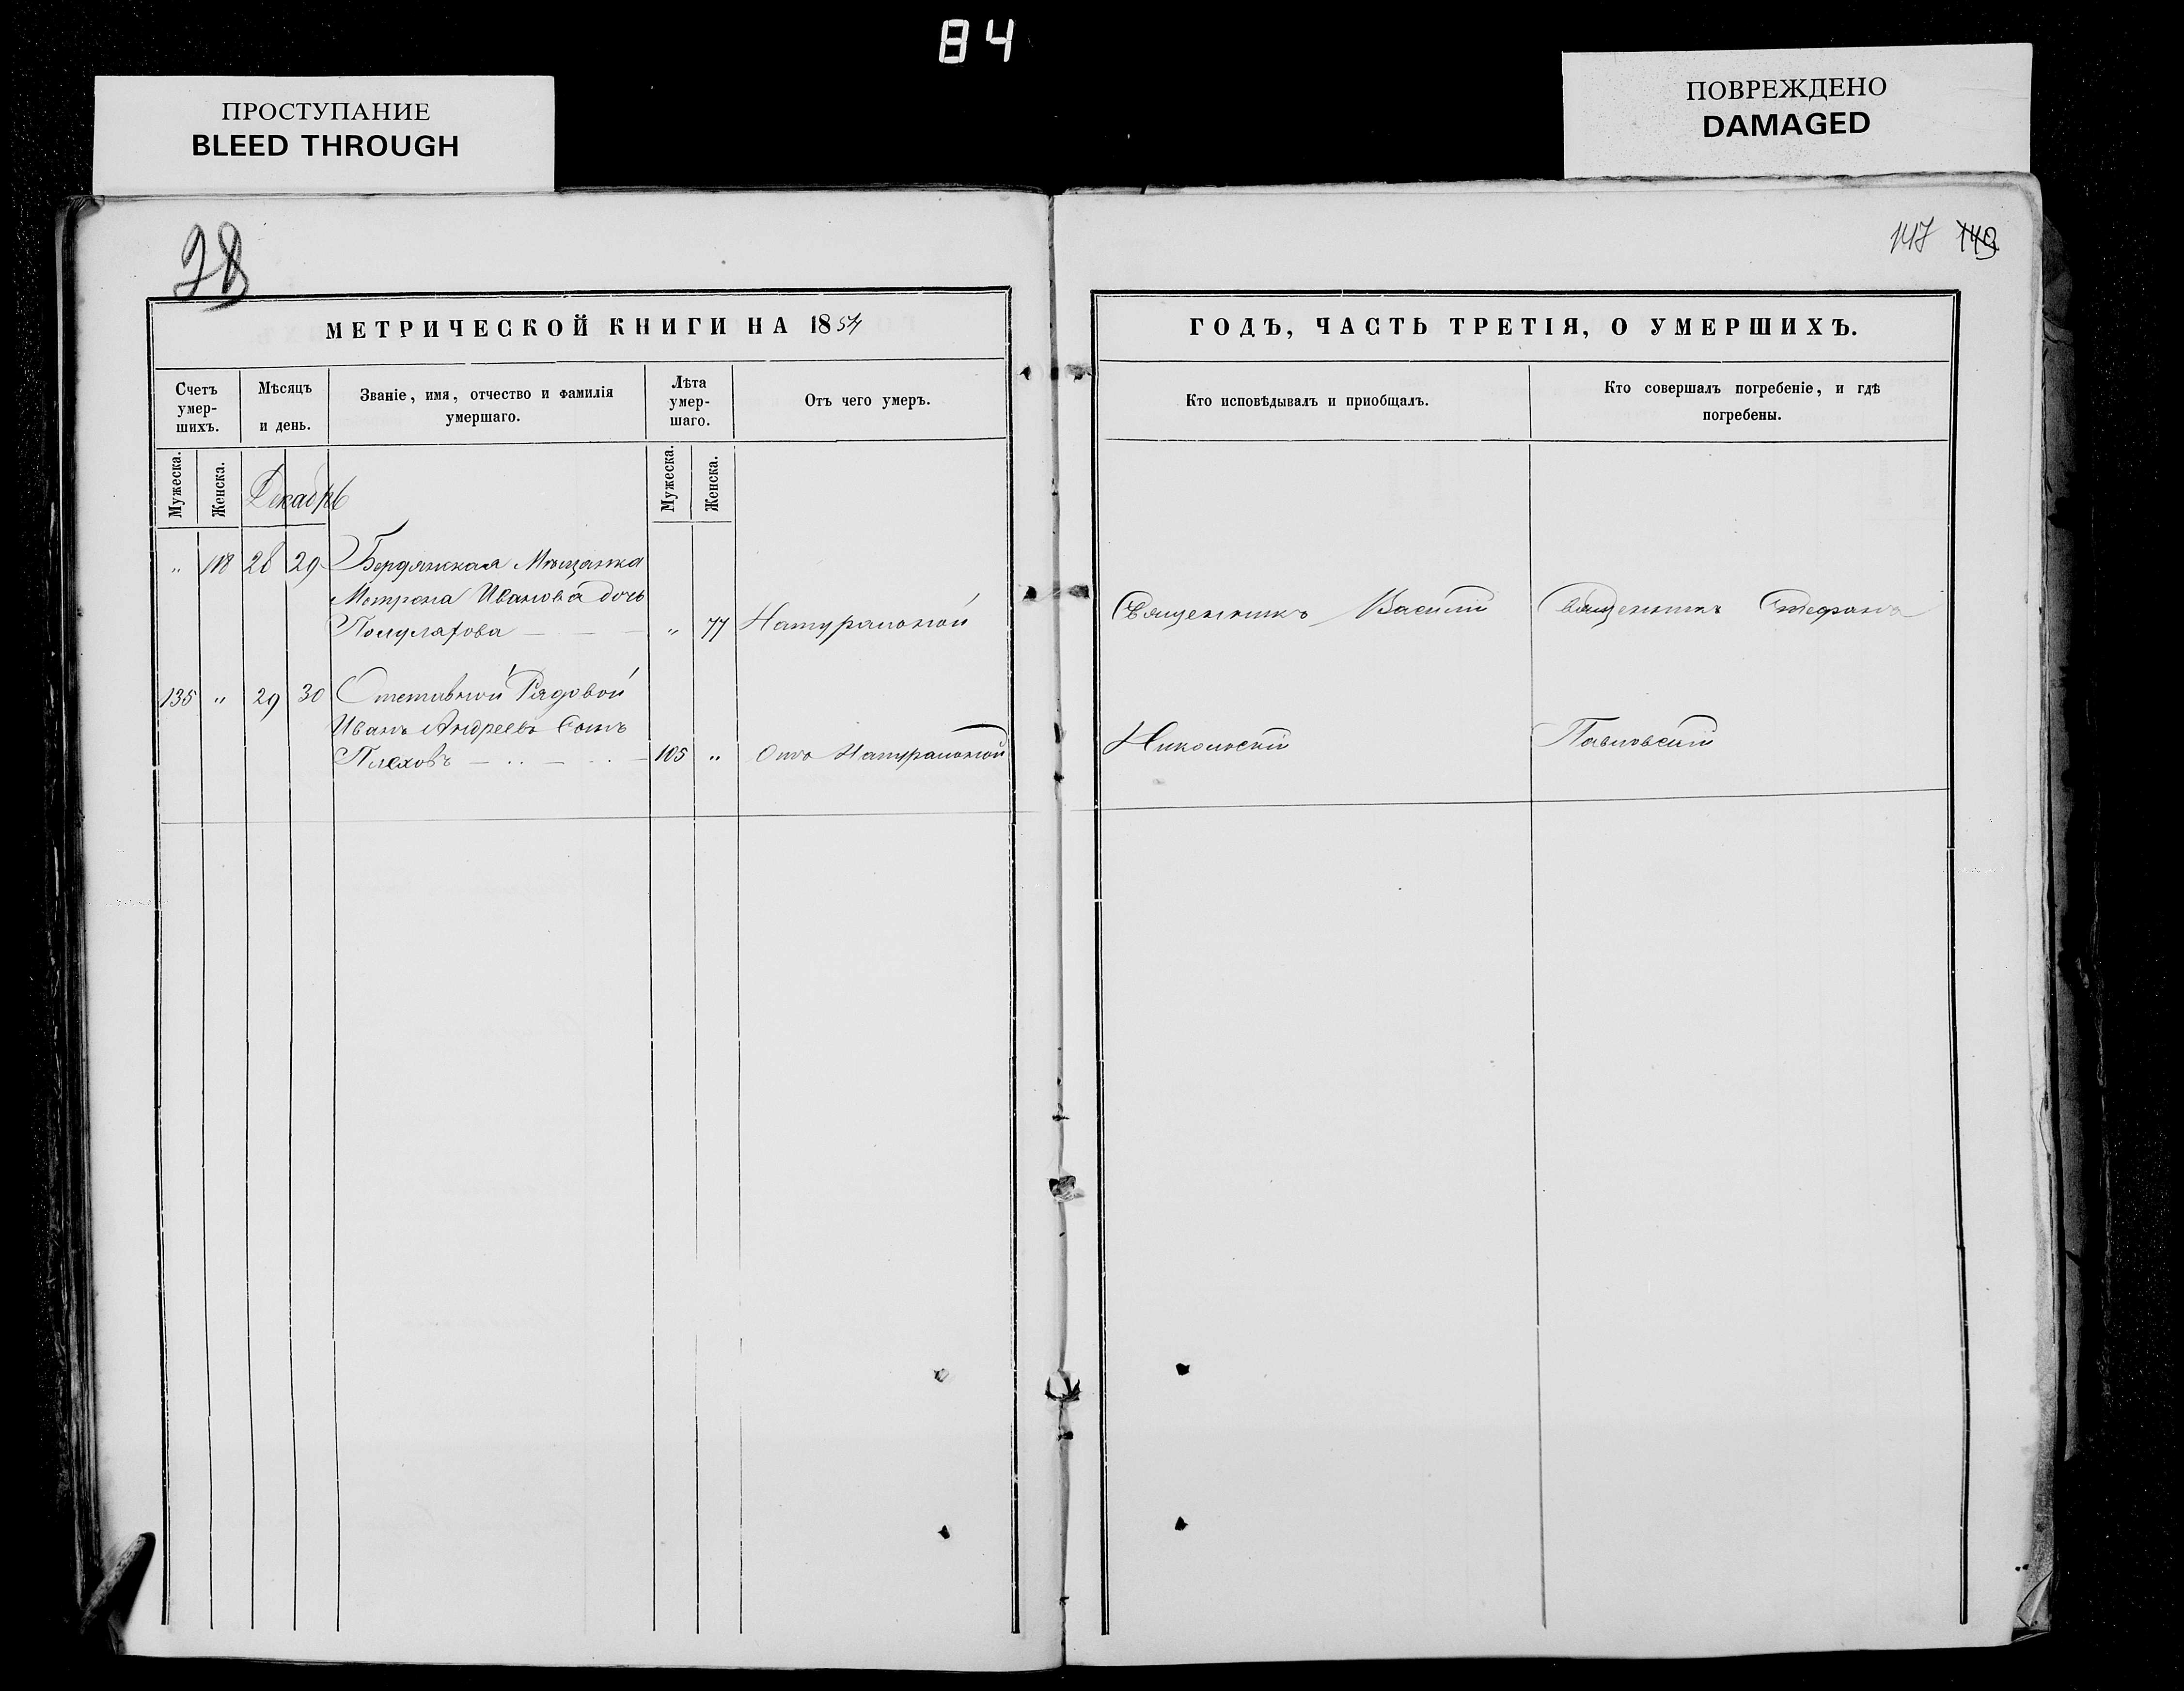 84
ПРОСТУПАНИЕ
BLEED THROUGH
ПОВРЕЖДЕНО
DAMAGED
38
147 149
МЕТРИЧЕСКОЙ КНИГИ НА 1854
Счетъ умер-шихъ.
Мѣсяцъ и день.
Званіе, имя, отчество и фамилія умершаго.
Лѣта умер-шаго.
Отъ чего умеръ.
Мужеска. Женска.
Декабрь
Мужеска. Женска.
" 118 28 29 Бердянская Мѣщанка
Матрена Иванова дочь
" 77 Натуральной
135 " 29 30 Отставной Рядовой
Иванъ Андреевъ Сынъ
Плеховъ 105 " Отъ Натуральной
ГОДЪ, ЧАСТЬ ТРЕТІЯ, О УМЕРШИХЪ.
Кто исповѣдывалъ и приобщалъ.
Кто совершалъ погребеніе, и гдѣ погребены.
Священникъ Василій
Священникъ Стефанъ
Никольскій
Павловскій